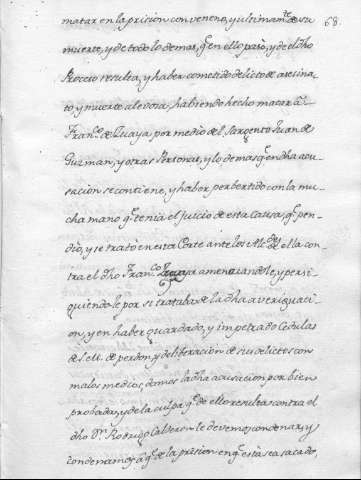 68.
matar en la pricion con veneno, y ultimamte. de su
muerte, y de todo lo demas, q. en ello paso, y de el dho
Proceso resulta, y haber cometido delicto de asesina-
to, y muerte alevosa, habiendo hecho matar â
Franco. de Xuaya por medio del Sargento Juan de
Guzman, y otras Personas, y lo demas q. en dha acu-
sación se contiene, y haber perbertido con la mu-
cha mano q. tenia el juicio de esta Causa, q. pen-
dio, y se trató en esta Corte ante los Alcdes. de ella con-
tra el dho Franco. Xuaya amenazandole, y persi-
guiendole por si trataba de la dha averiguaci-
on, y en haber guardado, y impetrado Cedulas
de S. M. de perdon, y de liberación de sus delictos con
malos medios, damos la dha acusacion por bien
probada, y de la culpa q. de ello resulta contra el
dho Dn. Rodrigo Calderon le devemos condenar, y
condenamos â q. de la prision en q. está sea sacado,